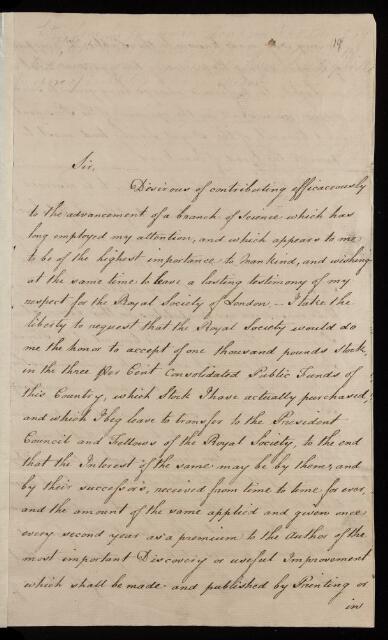 19
Sir,
Desirous of contributing efficaceously
to the advancement of a branch of Science which has
long employed my attention, and which appears to me
to be of the highest importance to Mankind, and wishing
at the same time to leave a lasting testimony of my
respect for the Royal Society of London, – I take the
liberty to request that the Royal Society would do
me the honor to accept of one thousand pounds Stock,
in the three per Cent Consolidated Public Funds of
this Country, which Stock I have actually purchased,
and which I beg leave to transfer to the President
Council and Fellows of the Royal Society, to the end
that the Interest of the same may be by them, and
by their successors, received from time to time for ever,
and the amount of the same applied and given once
every second year as a premium to the Author of the
most important Discovery or useful Improvement
which shall be made and published by Printing or
in